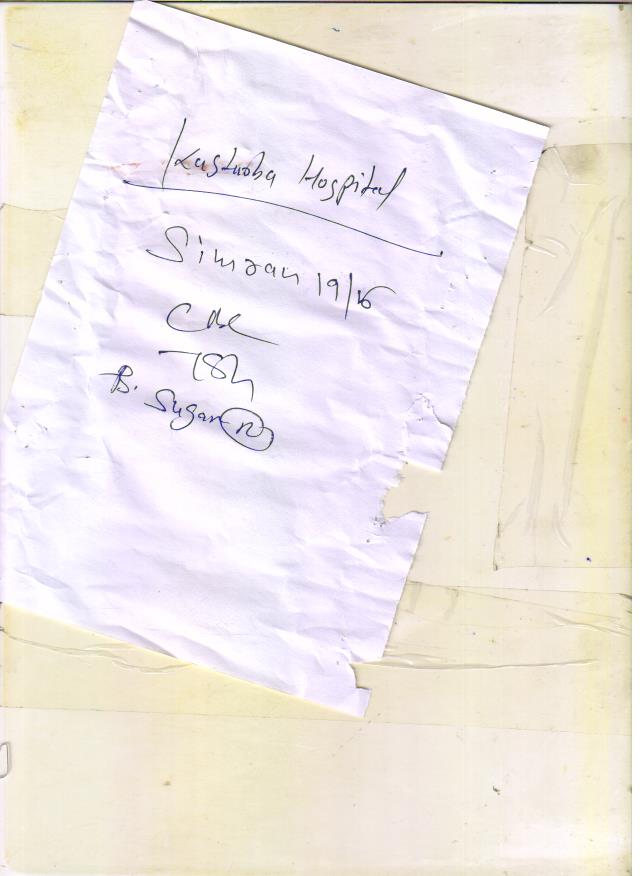 Kasturba Hospital
Simran 19/
CBC
TSH
B. Sugar (R)